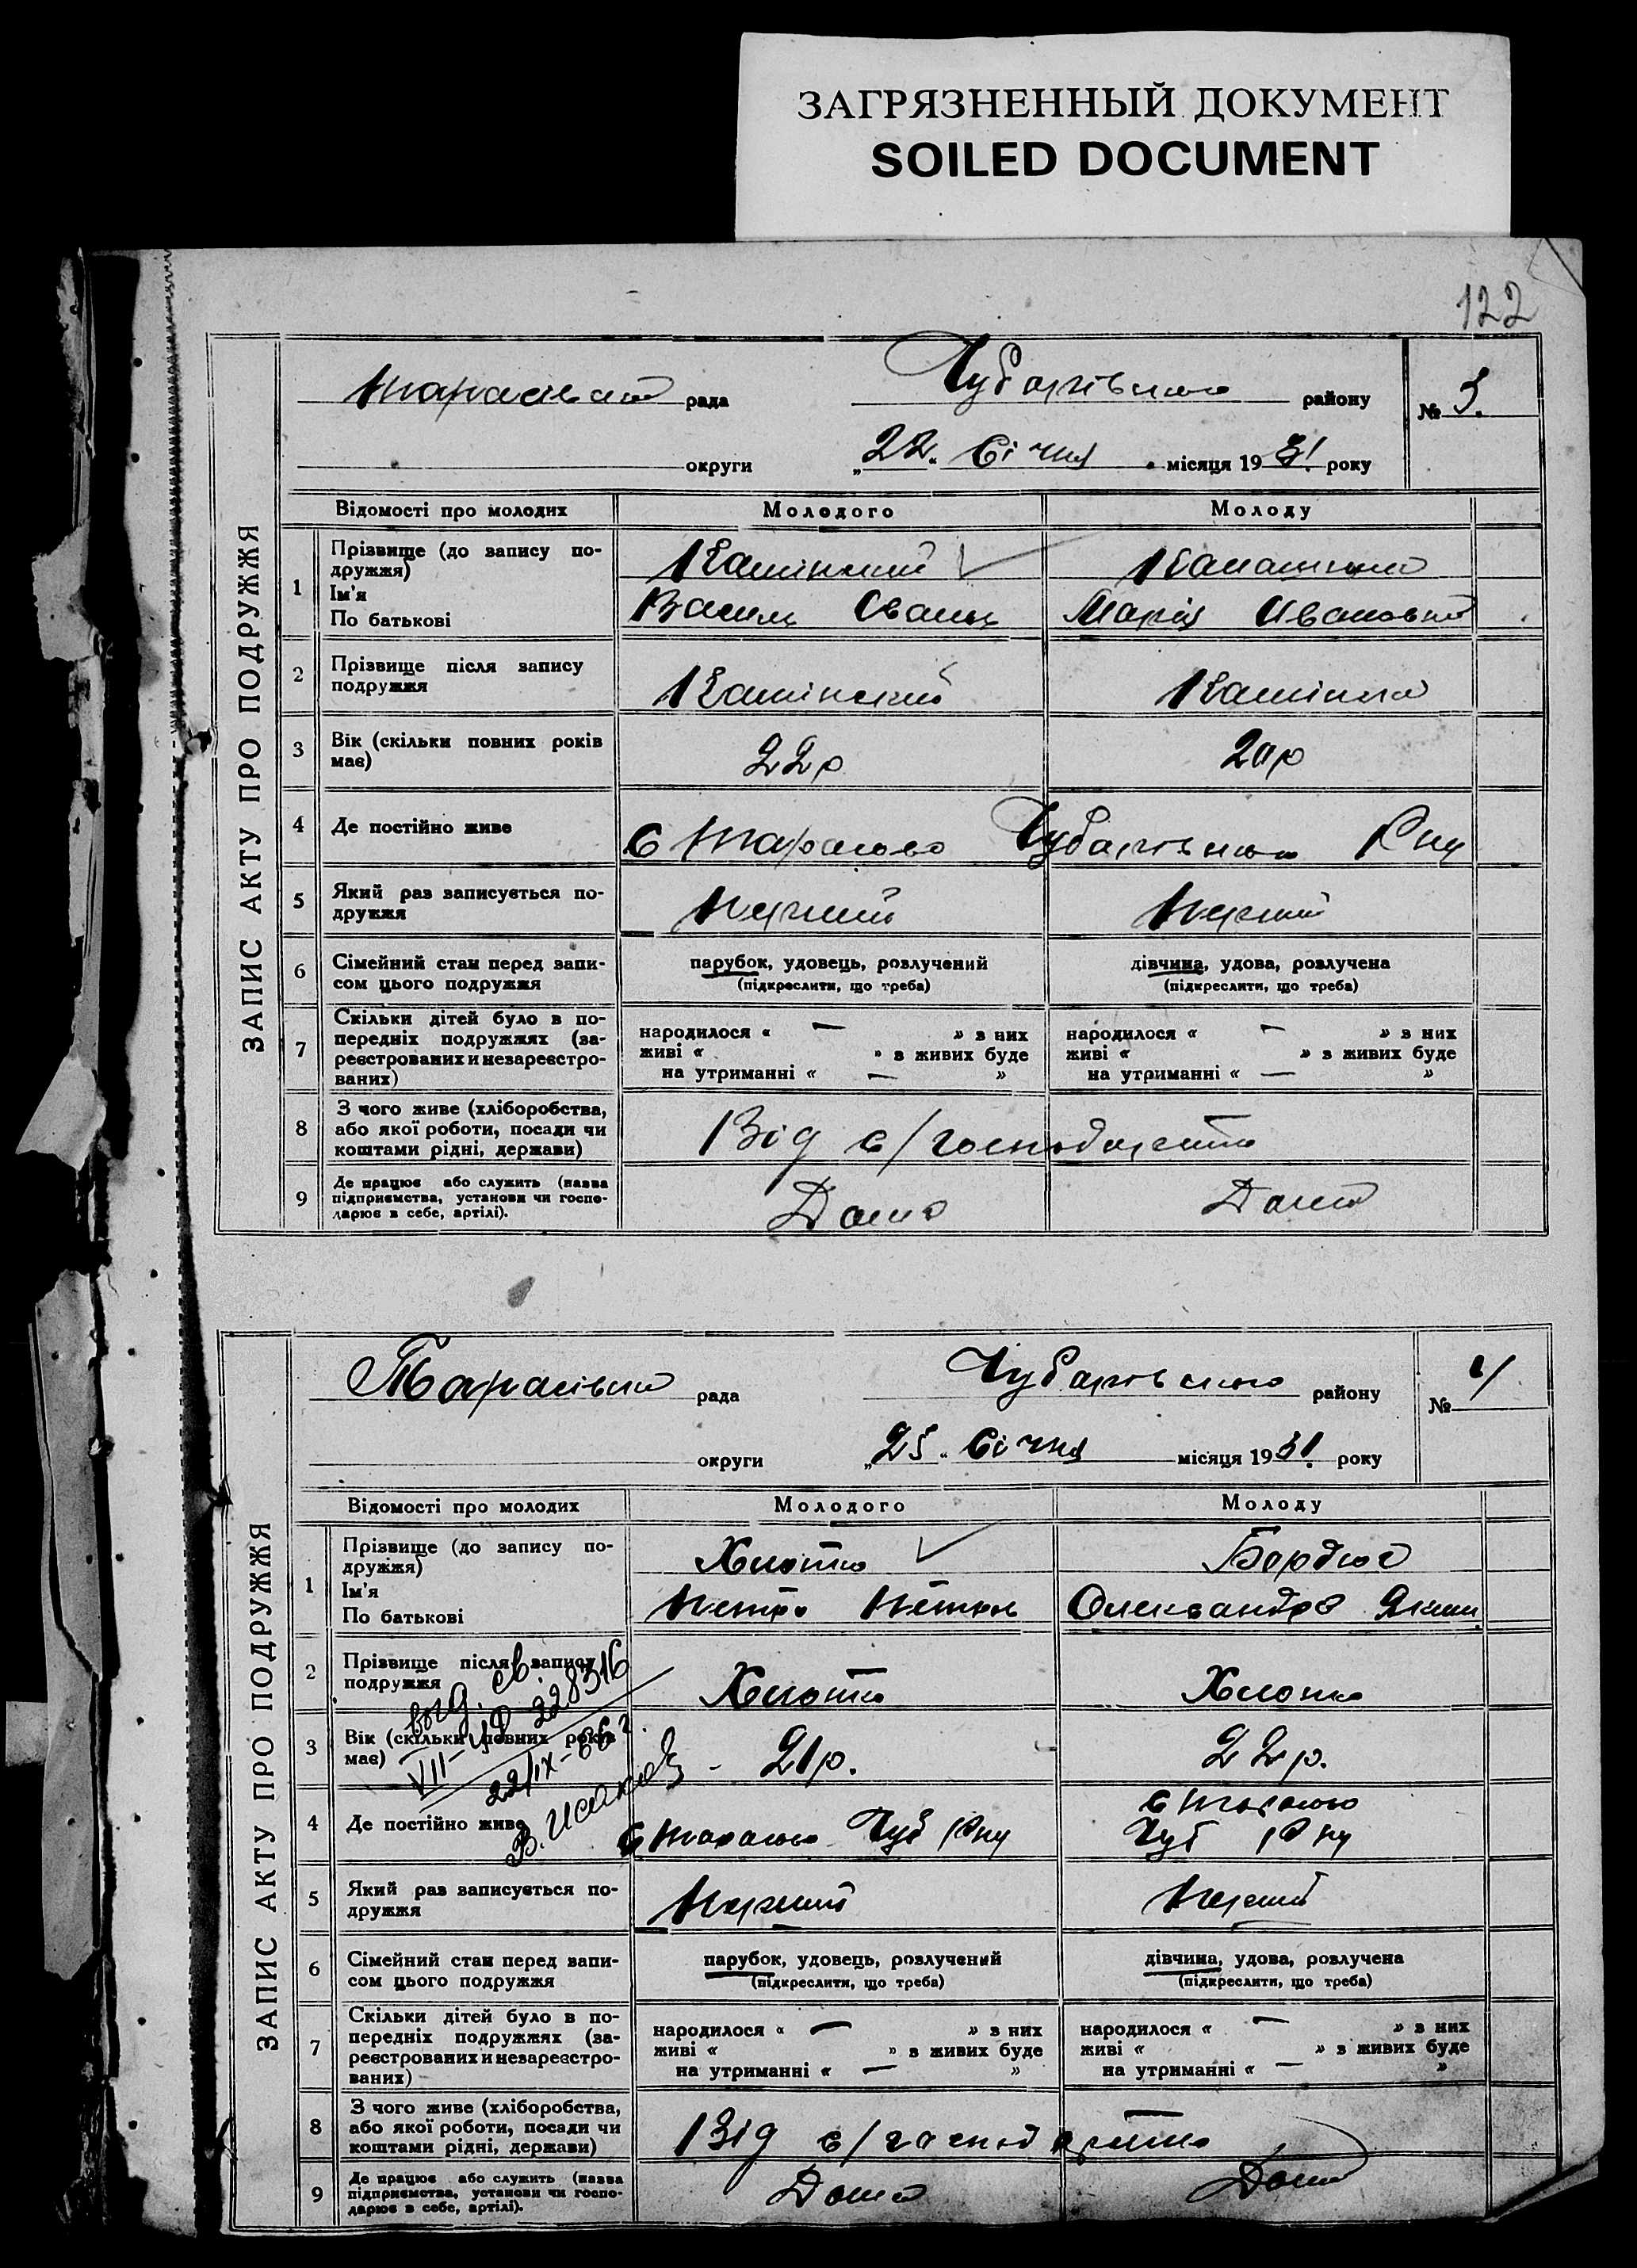 ЗАГРЯЗНЕННЫЙ ДОКУМЕНТ
SOILED DOCUMENT
122
ЗАПИС АКТУ ПРО ПОДРУЖЖЯ
рада Чубарівського району № 3.
округи „22“ Січня місяця 1931. року
Відомості про молодих Молодого Молоду
1 Прізвище (до запису по-
дружжя)
Ім'я
По батькові
Камінський
Василь Іванов Марія Ивановна
2 Прізвище після запису
подружжя
Камінский
3 Вік (скільки повних років
має)
22р 20р
4 Де постійно живе
с Тарасовка Чубарівського Р ну
5 Який раз записується по-
дружжя
Перший Перший
6 Сімейний стан перед запи-
сом цього подружжя
парубок, удовець, розлучений дівчина, удова, розлучена
(підкреслити, що треба) (підкреслити, що треба)
7 Скільки дітей було в по-
передніх подружжях (за-
реєстрованих и незареєстро-
ваних)
народилося « — » з них народилося « — » з них
живі « » з живих буде живі « » з живих буде
на утриманні « — » на утриманні « — »
8 З чого живе (хліборобства,
або якої роботи, посади чи
коштами рідні, держави)
Від с/господарства
9 Де працює або служить (назва
підприємства, установи чи госпо-
дарює в себе, артілі).
Дома Дома
ЗАПИС АКТУ ПРО ПОДРУЖЖЯ
Тарасівська рада Чубарівського району № 4
округи „25“ Січня місяця 1931. року
Відомості про молодих Молодого Молоду
1 Прізвище (до запису по-
дружжя)
Ім'я
По батькові
Бордюг
Петро Петров Олександра Яким
2 Прізвище після запису
подружжя
выд. св.
VII-
228316
22/IX-66г
3 Вік (скільки повних років
має)
21р. 22р.
4 Де постійно живе
с Тарасовка Чуб Рну
с Тарасовка
Чуб Рну
5 Який раз записується по-
дружжя
Перший Перший
6 Сімейний стан перед запи-
сом цього подружжя
парубок, удовець, розлучений дівчина, удова, розлучена
(підкреслити, що треба) (підкреслити, що треба)
7 Скільки дітей було в по-
передніх подружжях (за-
реєстрованих и незареєстро-
ваних)
народилося « — » з них народилося « — » з них
живі « » з живих буде живі « » з живих буде
на утриманні « — » на утриманні « — »
8 З чого живе (хліборобства,
або якої роботи, посади чи
коштами рідні, держави)
Від с/господарства
9 Де працює або служить (назва
підприємства, установи чи госпо-
дарює в себе, артілі).
Дома Дома